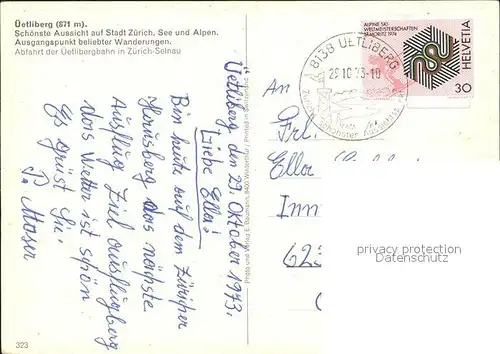 Üetliberg (871 m).
Schönste Aussicht auf Stadt Zürich, See und Alpen.
Ausgangspunkt beliebter Wanderungen.
Abfahrt der Uetlibergbahn in Zürich-Selnau
Uetliberg den 29. Oktober 1973.
Liebe Ella!
Bin heute auf dem Züricher
Hausberg das nächste
Ausflug Ziel ausflugberg
das Wetter ist schön
Es grüst Sie.
P. Moser
323
Photo und Verlag E. Baumann, 8400 Winterthur / Printed in Switzerland
8138 UETLIBERG
29.10.73-10
Zürichs schönster Aussichts
ALPINE SKI-
WELTMEISTERSCHAFTEN
ST. MORITZ 1974
HELVETIA
30
An
Frl.
Ella
Inn
623
privacy protection
www.